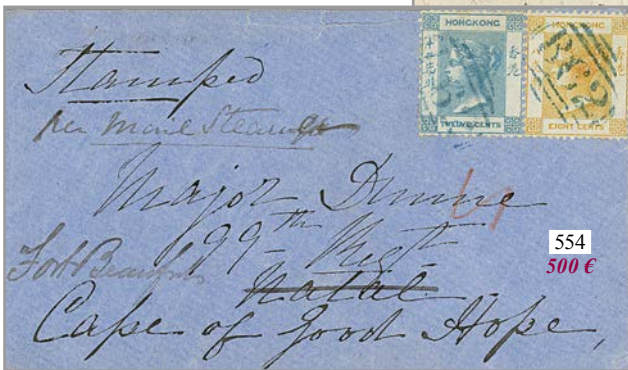 HONGKONG
TWELVE CENTS
HONGKONG
EIGHT CENTS
香港
Stamped
per Mail Steamer
Major Dunne
99th Regt
Natal
Fort Beaufort
Cape of Good Hope,
554
500 €